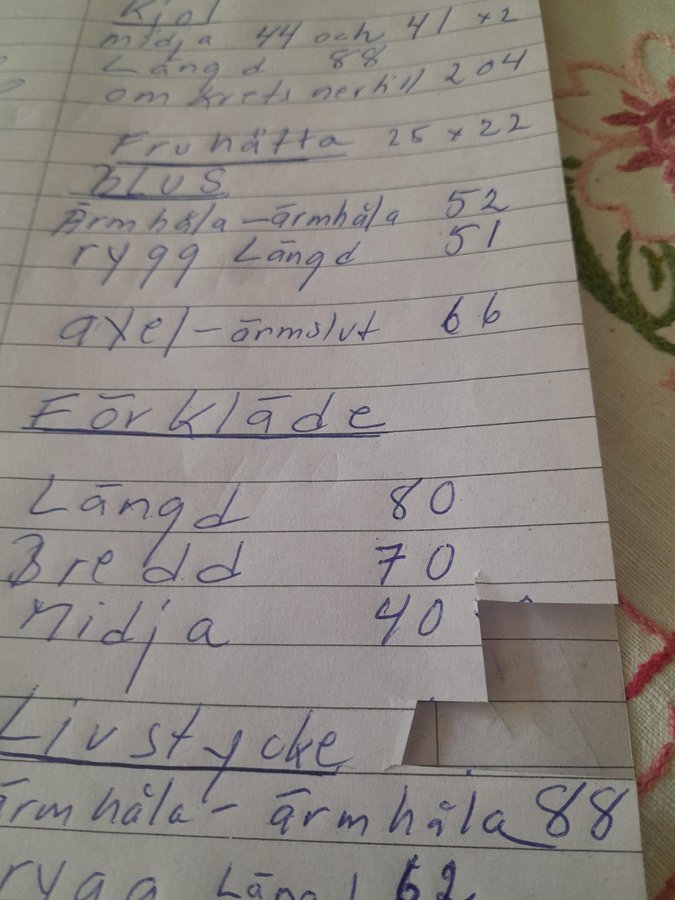 Kjol
midja 44 och 41 x2
Längd 88
omkrets nertill 204
Fruhätta 25 x 22
BLUS
Ärmhåla-ärmhåla 52
rygg Längd 51
axel-ärmslut 66
Förkläde
Längd 80
Bredd 70
Midja 40
Livstycke
ärmhåla-ärmhåla 88
rygg Längd 62